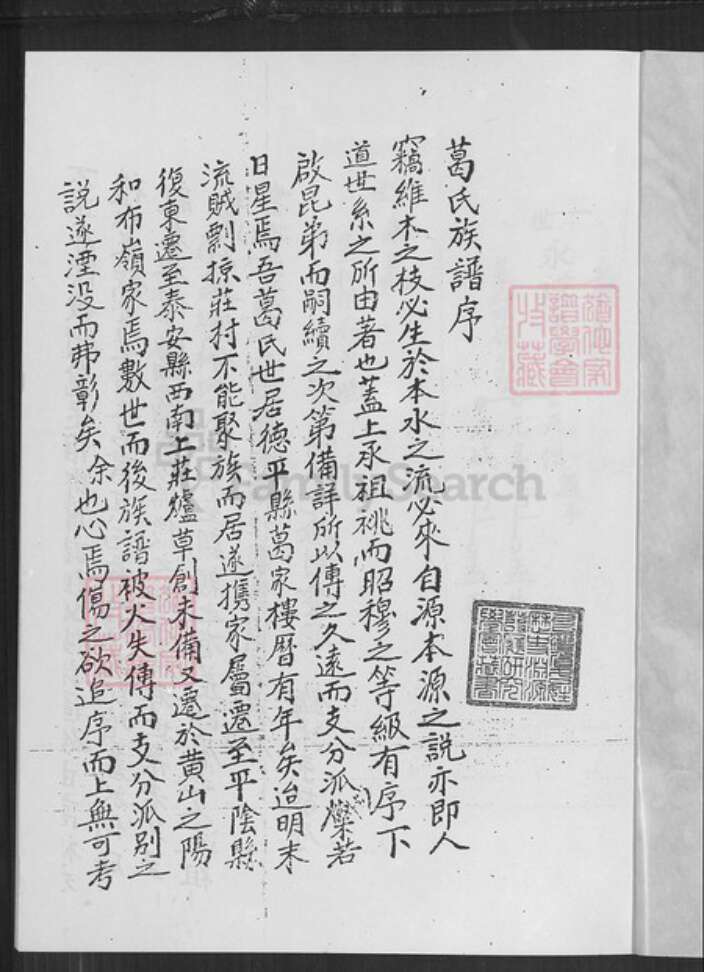 葛氏族譜序
竊維木之枝必生於本水之流必來自源本源之說亦即人
道世系之所由著也蓋上承祖祧而昭穆之等級有序下
啟昆弟而嗣續之次第備詳所以傳之久遠而支分派燦若
日星焉吾葛氏世居德平縣葛家樓曆有年矣迨明末
流賊剽掠莊村不能聚族而居遂携家屬遷至平陰縣
復東遷至泰安縣西南上莊爐草創未備又遷於黄山之陽
和布嶺家焉數世而後族譜被火失傳而支分派别之
說遂湮没而弗彰矣余也心焉傷之欲追序而上無可考
FamilySearch